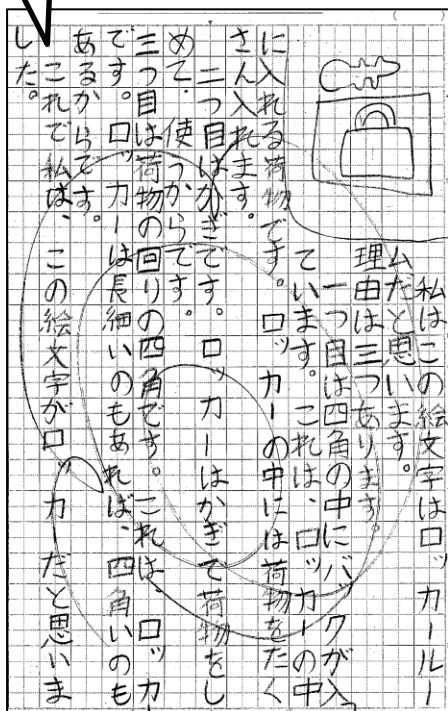 私はこの絵文字はロッカールー
ムだと思います。
理由は三つあります。
一つ目は四角の中にバックが入っ
ています。これは、ロッカーの中
に入れる荷物です。ロッカーの中には荷物をたく
さん入れます。
二つ目はかぎです。ロッカーはかぎで荷物をし
めて、使うからです。
三つ目は荷物の回りの四角です。これは、ロッカー
です。ロッカーは長細いのもあれば、四角いのも
あるからです。
これで私は、この絵文字がロッカーだと思いま
した。